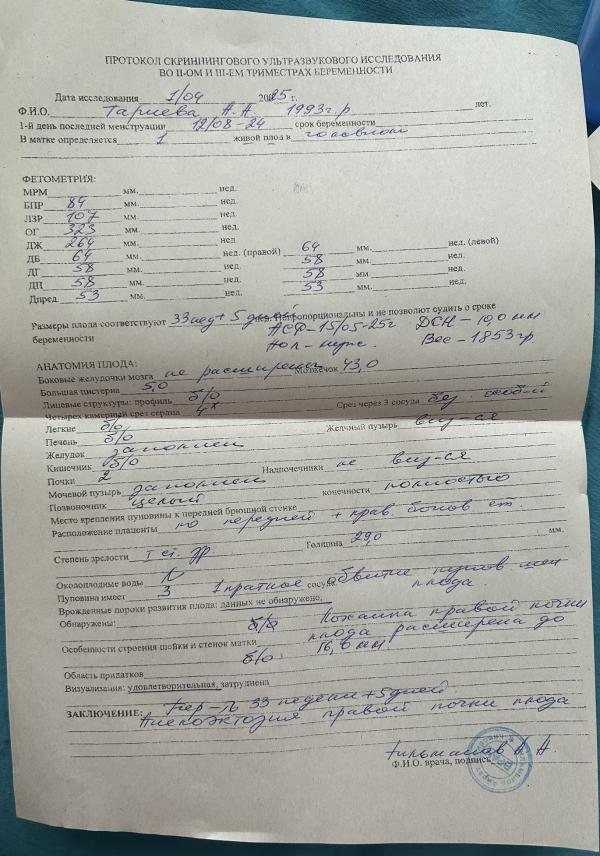 ПРОТОКОЛ СКРИННИНГОВОГО УЛЬТРАЗВУКОВОГО ИССЛЕДОВАНИЯ
ВО II-ОМ И III-ЕМ ТРИМЕСТРАХ БЕРЕМЕННОСТИ
Дата исследования 1/04 2025 г.
Ф.И.О. А.А. 1993г.р лет.
1-й день последней менструации 12/08-24 срок беременности
В матке определяется 1 живой плод в головном
ФЕТОМЕТРИЯ:
МРМ мм. нед.
БПР 84 мм. нед.
ЛЗР 107 мм. нед.
ОГ 323 мм. нед.
ДЖ 264 мм. нед.
ДБ 64 мм. нед. (правой) 64 мм. нед. (левой)
ДГ 58 мм. нед. 58 мм. нед.
ДП 58 мм. нед. 58 мм. нед.
Дпред 53 мм. нед. 53 мм. нед.
Размеры плода соответствуют 33нед + 5 дней нед. Непропорциональны и не позволют судить о сроке
беременности
15/05-25г
Пол - муж. Вес - 1853гр.
АНАТОМИЯ ПЛОДА:
Боковые желудочки мозга не расширены Мозжечок 43,0
Большая цистерна 5,0
Лицевые структуры: профиль б/о
Четырех камерный срез сердца 4х Срез через 3 сосуда без особ-й
Легкие б/о
Печень б/о Желчный пузырь виз-ся
Желудок заполнен
Кишечник б/о
Почки 2 Надпочечники не виз-ся
Мочевой пузырь заполнен
Позвоночник целый конечности полностью
Место крепления пуповины к передней брюшной стенке
Расположение плаценты по передней + прав. боков ст.
Степень зрелости I ст. зр Толщина 29,0 мм.
Околоплодные воды N
Пуповина имеет 3 сосуда 1 кратное обвитие пупов шеи
плода.
Врожденные пороки развития плода: данных не обнаружено,
Обнаружены: б/о Лоханка правой почки
плода расширена до
16,0 мм.
Особенности строения шейки и стенок матки б/о
Область придатков
Визуализация: удовлетворительная, затруднена
ЗАКЛЮЧЕНИЕ: Бер-ть 33 недели +5дней
Пиелоэктазия правой почки плода
Ф.И.О. врача, подпись